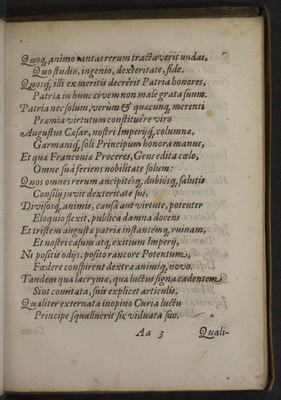 Quoq, animo tantas rerum tractaverit undas,
Quo studio, ingenio, dexteritate, fide.
Quosq, illi ex meritis decrêrit Patria honores,
Patria in hunc civem non male grata suum.
Patria nec solum, verùm & quæcunq, merenti
Præmia virtutum constituêre viro
Augustus Cæsar, nostri Imperijq, columnæ,
Germaniq, soli Principum honora manus,
Et qua Franconia Proceres, Gens edita cœlo,
Omne sua feriens nobilitate solum:
Quos omnes rerum ancipitésq, dubiósq, salutis
Consilijs juvit dexteritate sui,
Divisosq, animis, causâ aut virtute, potenter
Eloquio flexit, publica damna docens
Et tristem augustæ patriæ instantémq, ruinam,
Et nostri casum atq, exitium Imperij,
Ni positis odijs, posito rancore Potentum,
Fœdere conspirent dextra animíq, novo.
Tandem qua lacrymæ, qua luctus signa cadentem
Sint comitata, suis explicet articulis.
Qualiter externata inopino Curia luctu
Principe squalluerit sic viduata suo.
Aa 3 Quali-